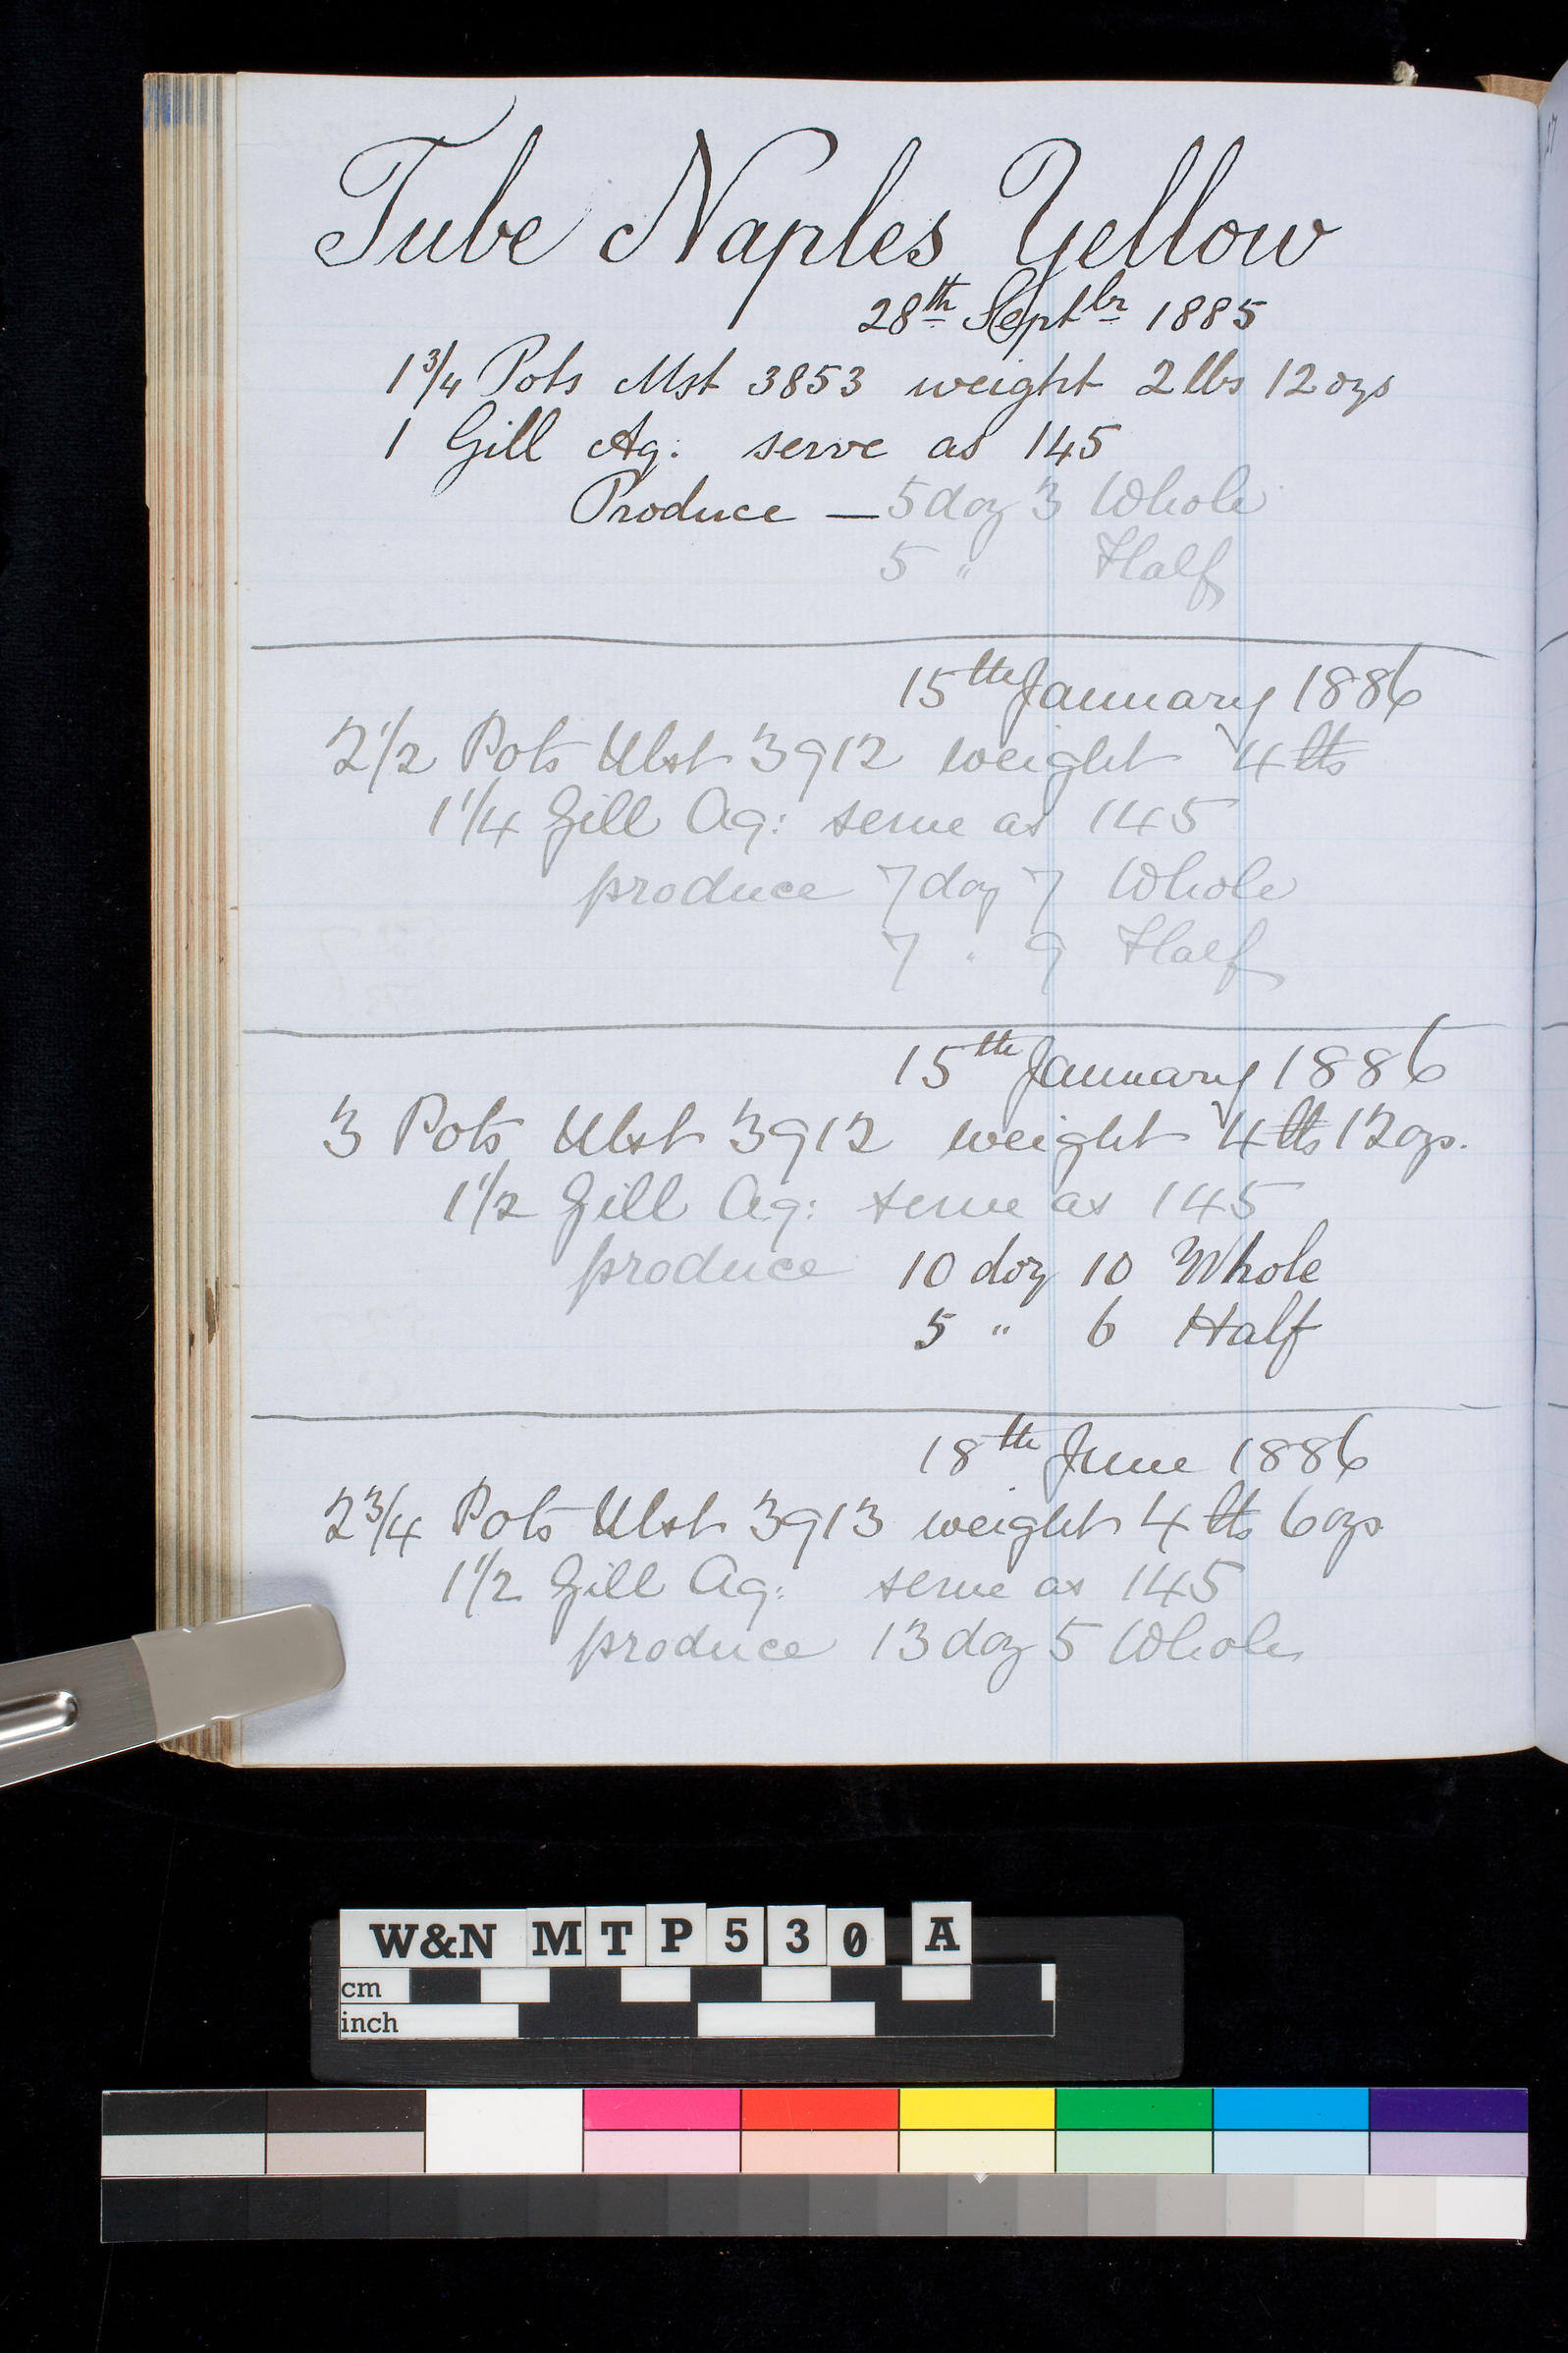 Tube Naples Yellow
28th Septbr 1885
1 3/4 Pots Mst 3853 weight 2 lbs 12 ozs
1 Gill Ag. serve as 145
Produce — 5 doz 3 Whole
5 " Half
15th January 1886
2 1/2 Pots Mst 3912 weight 4 lbs
1 1/4 Gill Ag: serve as 145
produce 7 doz 7 Whole
7 " 9 Half
15th January 1886
3 Pots Mst 3912 weight 4 lbs 12 ozs.
1 1/2 Gill Ag: serve as 145
produce 10 doz 10 Whole
5 " 6 Half
18th June 1886
2 3/4 Pots Mst 3913 weight 4 lbs 6 ozs
1 1/2 Gill Ag: serve as 145
produce 13 doz 5 Whole
W&N MTP530 A
cm
inch